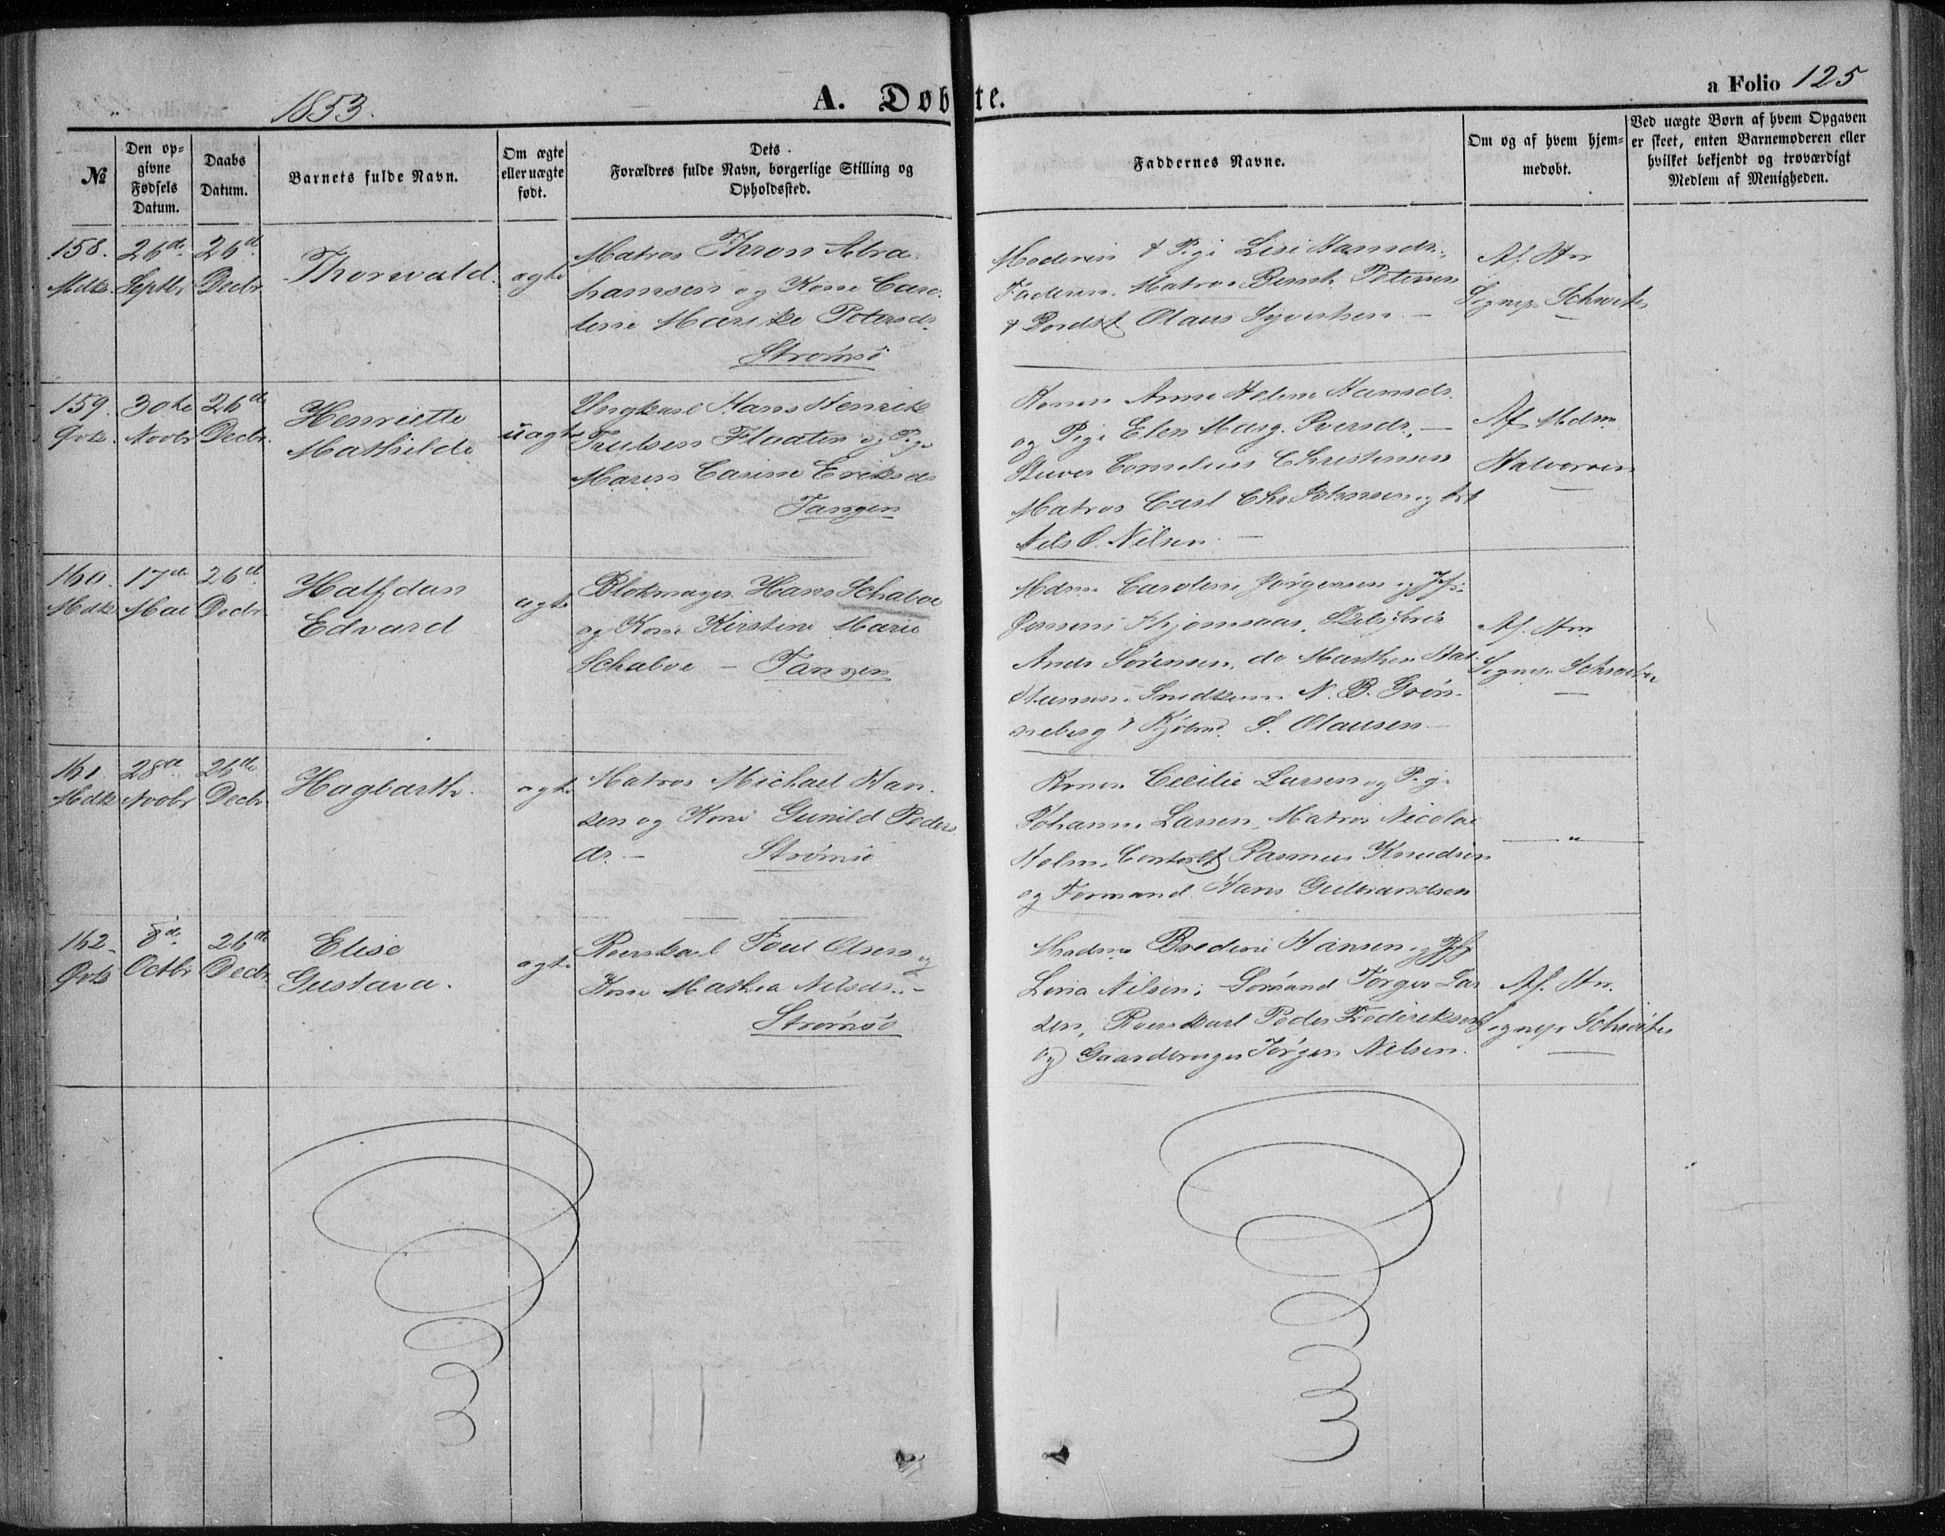 1853.
A. Døbte.
a Folio 125
№
Den op-
givne
Fødsels
Datum.
Daabs
Datum.
Barnets fulde Navn.
Om ægte
eller uægte
født.
Dets
Forældres fulde Navn, borgerlige Stilling og
Opholdssted.
Faddernes Navne.
Om og af hvem hjem-
medøbt.
Ved uægte Børn af hvem Opgaven
er skeet, enten Barnemoderen eller
hvilket bekjendt og troværdigt
Medlem af Menigheden.
158.
Mdk.
26de
Septbr
26de
Decbr.
Thorvald.
ægte
Matros Thron Abra-
hamsen og Kone Caro-
line Marike Petersdr.
Strømsø
Moderen & Pige Lisi Hansdr.,
Faderen, Matros Bernh. Petersen
& Olaus Syvertsen. —
Af Hr
Sognepr. Schwartz
159.
Qvk.
30te
Novbr
26de
Decbr.
Henriette
Mathilde
uægte
Ungkarl Hans Henrik
Trulsen Flaaten og Pige
Maren Carine Eriksdr
Tangen
Konen Anne Helene Hansdr.
og Pige Elen Marg. Iversdr, —
Cornelius Christensen
Matros Carl Chr. Petersen og
Nels O. Nilsen —
Af Mdm
Halvorsen
160.
Mdk
17de
Mai
26de
Decbr.
Halfdan
Edvard
ægte
Blokmager Hans Schaboe
og Kone Kirstine Marie
Schaboe — Tangen
Mdm Caroline Jørgensen og Jfr:
Anders Sørensen, do
Snedkerm. N. B. Grøn-
neberg & Kjøbmd. S. Olausen. —
Af Hr
Sognepr. Schwartz
161.
Mdk
28de
Novbr
26de
Decbr.
Hagbarth.
ægte
Matros Michael Han-
sen og Kone Gunild Peders
dr. — Strømsø
Konen Cecilie Larsen og Pige
Johanne Larsen, Matros Nicolai
Holm, Rasmus Knudsen
og Formand Hans Gulbrandsen
— " —
162.
Qvk
8de
Octbr
26de
Decbr.
Elise
Gustava.
ægte
Poul Olsen og
Kone Mathea Nilsdr. —
Strømsø
Madm Bredine Hansen og Jfr
Lina Nilsen; Sømand Jørgen Lar
sen, Peder Frederiksen
og Gaardbruger Jørgen Nilsen.
Af Hr.
Sognepr Schwartz